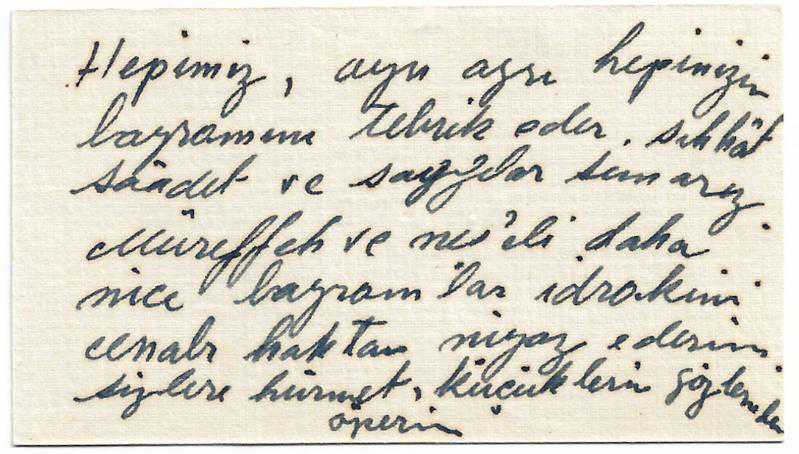 Hepimiz, ayrı ayrı hepinizin
bayramını tebrik eder. sıhhât
saâdet ve saygılar sunarız
Müreffeh ve neş'eli daha
nice bayram'lar idrakini
cenabı haktan niyaz ederim
sizlere hürmet, küçüklerin gözlerinden
öperim